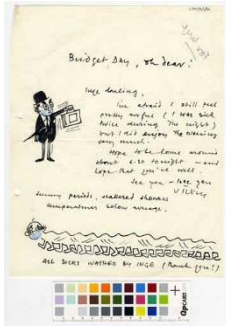 Budget Day, oh dear!
Inge darling,
I'm afraid I still feel
pretty awful (I was sick
twice during the night)
but I did enjoy the evening
very much.
Hope to be home around
about 6.30 tonight — and
hope that you're well.
See you — love you
Sunny periods, scattered showers
temperatures below average.
ALL SOCKS WASHED BY INGE (thank you!)